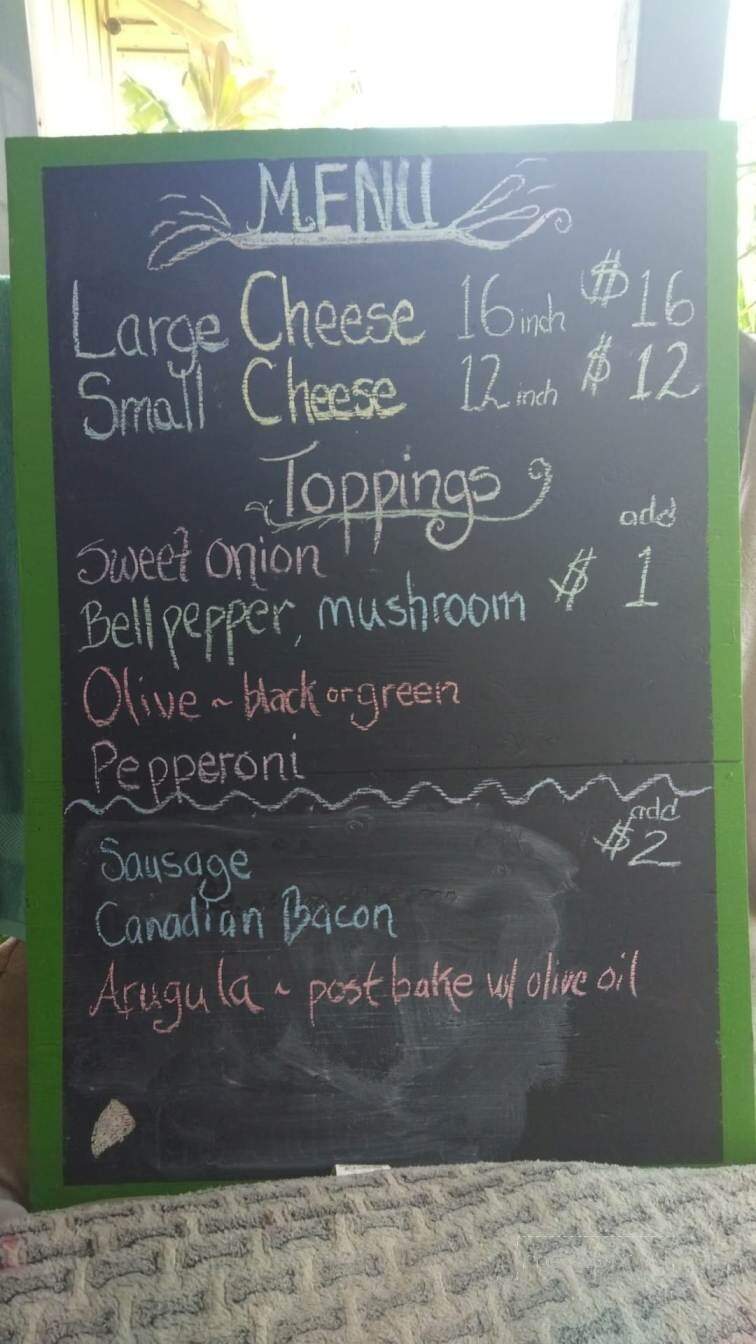 MENU
Large Cheese 16 inch $16
Small Cheese 12 inch $12
Toppings
add
Sweet onion
$1
Bell pepper, mushroom
Olive ~ black or green
Pepperoni
add
$2
Sausage
Canadian Bacon
Arugula ~ post bake w/ olive oil